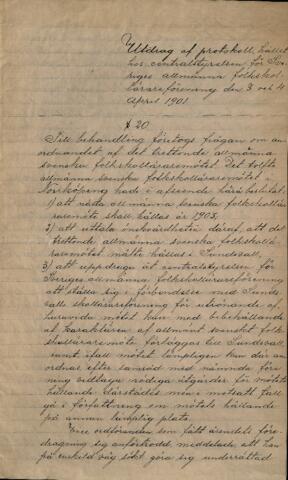 Utdrag af protokoll, hållet
hos centralstyrelsen för Sve-
riges allmänna folkskol-
lärareförening den 3 och 4
April 1901.
§ 20
Till behandling företogs frågan om an-
ordnandet af det trettonde allmänna
svenska folkskolläraremötet. Det tolfte
allmänna svenska folkskolläraremötet i
Norrköping hade i afseende härå beslutat:
1) att nästa allmänna svenska folkskollä-
raremöte skall hållas år 1903;
2) att uttala önskvärdheten däraf, att det
trettonde allmänna svenska folkskollä-
raremötet måtte hållas i Sundsvall,
3) att uppdraga åt centralstyrelsen för
Sveriges allmänna folkskollärareförening
att ställa sig i förbindelse med Sunds-
valls skollärareförening för utrönande af
huruvida mötet kan med bibehållande
af karaktären af allmänt svenskt folk-
skolläraremöte förläggas till Sundsvall,
samt ifall mötet lämpligen kan där an-
ordnas efter samråd med nämnda före-
ning vidtaga nödiga åtgärder för mötets
hållande därstädes men i motsatt fall
gå i författning om mötets hållande
på annan lämplig plats.
Vice ordföranden som fått ärendets före-
dragning sig anförtrodd, meddelade att han
på enskild väg sökt göra sig underrättad